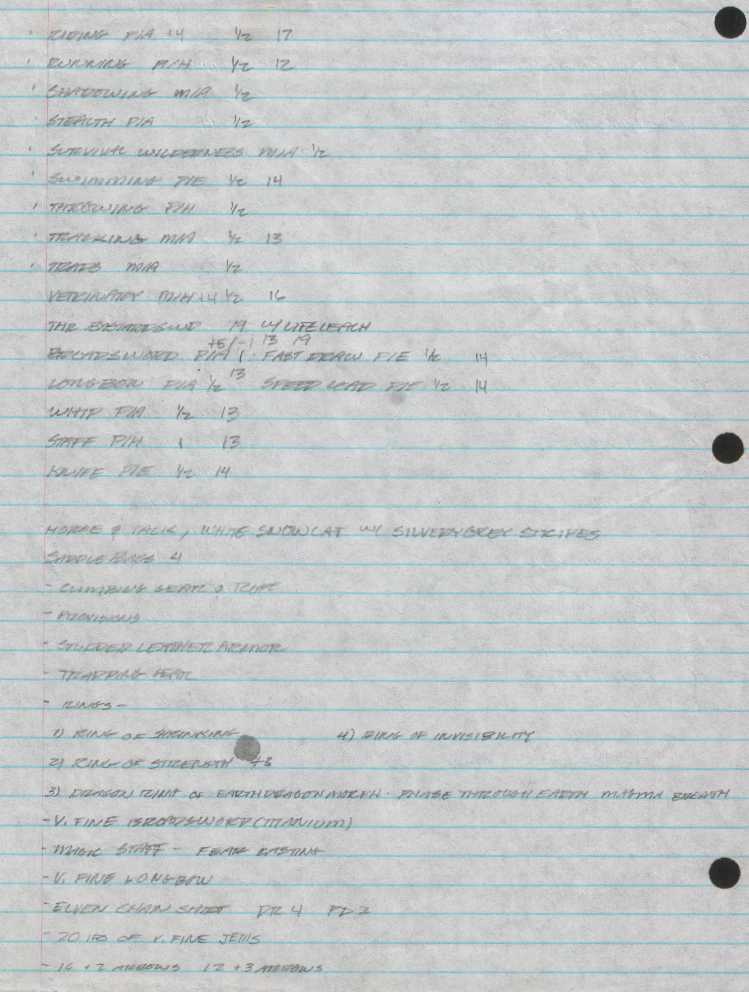 · RIDING P/A +4 1/2 17
· RUNNING P/H 1/2 12
· SHADOWING M/A 1/2
· STEALTH P/A 1/2
· SURVIVAL WILDERNESS M/A 1/2
· SWIMMING P/E 1/2 14
· THROWING P/H 1/2
· TRACKING M/A 1/2 13
· TRAPS M/A 1/2
VETERINARY M/H +4 1/2 16
THR BROADSWD 19 W/ LIFELEACH
+5/-1 13 19
BROADSWORD P/A 1 · FAST DRAW P/E 1/2 14
LONGBOW P/A 1/2 13 SPEED LOAD P/E 1/2 14
WHIP P/A 1/2 13
STAFF P/H 1 13
KNIFE P/E 1/2 14
HORSE & TALIK, WHITE SNOWCAT W/ SILVERYGREY STRIPES
SADDLE BAGS 4
- CLIMBING GEAR &
- PROVISIONS
- STUDDED LEATHER ARMOR
- TRAPPING GEAR
- RINGS -
1) RING OF SHRINKING 4) RING OF INVISIBILITY
2) RING OF STRENGTH +3
3) DRAGON RING OF EARTHDRAGON MORPH · PHASE THROUGH EARTH MAGMA BREATH
- V. FINE BROADSWORD (TITANIUM)
- MAGIC STAFF - FEAR CASTING
- V. FINE LONGBOW
- ELVEN CHAIN SHIRT DR 4 PD 2
- 20 LBS OF V. FINE JEWLS
- 16 +2 ARROWS 12 +3 ARROWS